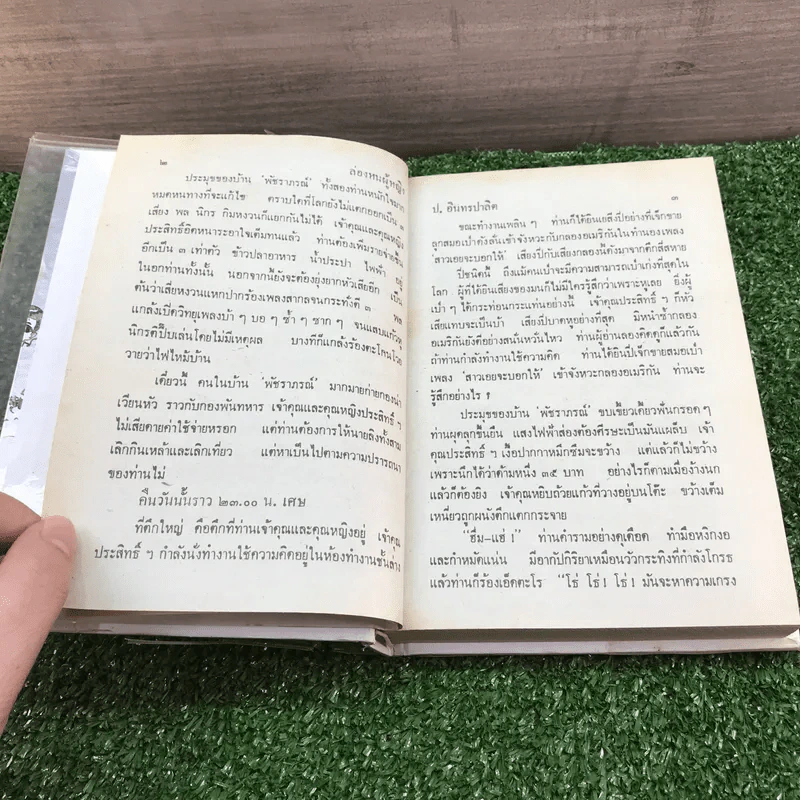 ๒
ล่องหนผู้หญิง
ประมุขของบ้าน 'พัชราภรณ์' ทั้งสองท่านหนักใจมาก
หมดหนทางที่จะแก้ไข ตราบใดที่โลกยังไม่แตกออกเป็น ๓
เสี่ยง พล นิกร กิมหงวนก็แยกกันไม่ได้ เจ้าคุณและคุณหญิง
ประสิทธิ์อิดหนาระอาใจเต็มทนแล้ว ท่านต้องเพิ่มรายจ่ายขึ้น
อีกเป็น ๓ เท่าตัว ข้าวปลาอาหาร น้ำประปา ไฟฟ้า
ในอกท่านทั้งนั้น นอกจากนี้ยังจะต้องยุ่งยากหัวเสียอีก เป็น
ต้นว่าเสี่ยหงวนแหกปากร้องเพลงสากลจนกระทั่งตี ๓ พล
แกล้งเปิดวิทยุเพลงบ้า ๆ บอ ๆ ซ้ำ ๆ ซาก ๆ จนแสบแก้วหู
นิกรตีปี๊บเล่นโดยไม่มีเหตุผล บางทีก็แกล้งร้องตะโกนโวย
วายว่าไฟไหม้บ้าน
เดี๋ยวนี้ คนในบ้าน 'พัชราภรณ์' มากมายก่ายกองน่า
เวียนหัว ราวกับกองพันทหาร เจ้าคุณและคุณหญิงประสิทธิ์ ฯ
ไม่เสียดายค่าใช้จ่ายหรอก แต่ท่านต้องการให้นายลิงทั้งสาม
เลิกกินเหล้าและเลิกเที่ยว แต่หาเป็นไปตามความปรารถนา
ของท่านไม่
คืนวันนั้นราว ๒๓.๐๐ น. เศษ
ที่ตึกใหญ่ คือตึกที่ท่านเจ้าคุณและคุณหญิงอยู่ เจ้าคุณ
ประสิทธิ์ ฯ กำลังนั่งทำงานใช้ความคิดอยู่ในห้องทำงานชั้นล่าง
ป. อินทรปาลิต
๓
ขณะทำงานเพลิน ๆ ท่านก็ได้ยินเสียงปี่อย่างที่เจ๊กขาย
ลูกสมอเป่าดังลั่นเข้าจังหวะกับกลองอเมริกันในทำนองเพลง
'สาวเอยจะบอกให้' เสียงปี่กับเสียงกลองนี้ดังมาจากตึกสี่สหาย
ปี่ชนิดนี้ ถึงแม้คนเป่าจะมีความสามารถเป่าเก่งที่สุดใน
โลก ผู้ที่ได้ยินเสียงของมันก็ไม่มีใครรู้สึกว่าเพราะหูเลย ยิ่งผู้
เป่า ๆ ได้กระท่อนกระแท่นอย่างนี้ เจ้าคุณประสิทธิ์ ฯ ก็หัว
เสียแทบจะเป็นบ้า เสียงปี่บาดหูอย่างที่สุด มิหนำซ้ำกลอง
อเมริกันยังตีอย่างสนั่นหวั่นไหว ท่านผู้อ่านลองคิดดูก็แล้วกัน
ถ้าท่านกำลังทำงานใช้ความคิด ท่านได้ยินปี่เจ๊กขายสมอเป่า
เพลง 'สาวเอยจะบอกให้' เข้าจังหวะกลองอเมริกัน ท่านจะ
รู้สึกอย่างไร ?
ประมุขของบ้าน 'พัชราภรณ์' ขบเขี้ยวเคี้ยวฟันกรอด ๆ
ท่านผุดลุกขึ้นยืน แสงไฟฟ้าส่องต้องศีรษะเป็นมันแผล็บ เจ้า
คุณประสิทธิ์ ฯ เงื้อปากกาหมึกซึมจะขว้าง แต่แล้วก็ไม่ขว้าง
เพราะนึกได้ว่าด้ามหนึ่ง ๓๕ บาท อย่างไรก็ตามเมื่อง้างนก
แล้วก็ต้องยิง เจ้าคุณหยิบถ้วยแก้วที่วางอยู่บนโต๊ะ ขว้างเต็ม
เหนี่ยวถูกผนังตึกแตกกระจาย
“ฮึ่ม-แฮ่ !” ท่านคำรามอย่างดุเดือด ทำมือหงิกงอ
และกำหมัดแน่น มีอากัปกิริยาเหมือนวัวกระทิงที่กำลังโกรธ
แล้วท่านก็ร้องเอ็ดตะโร “โธ่ โธ่! โธ่ ! มันจะหาความเกรง